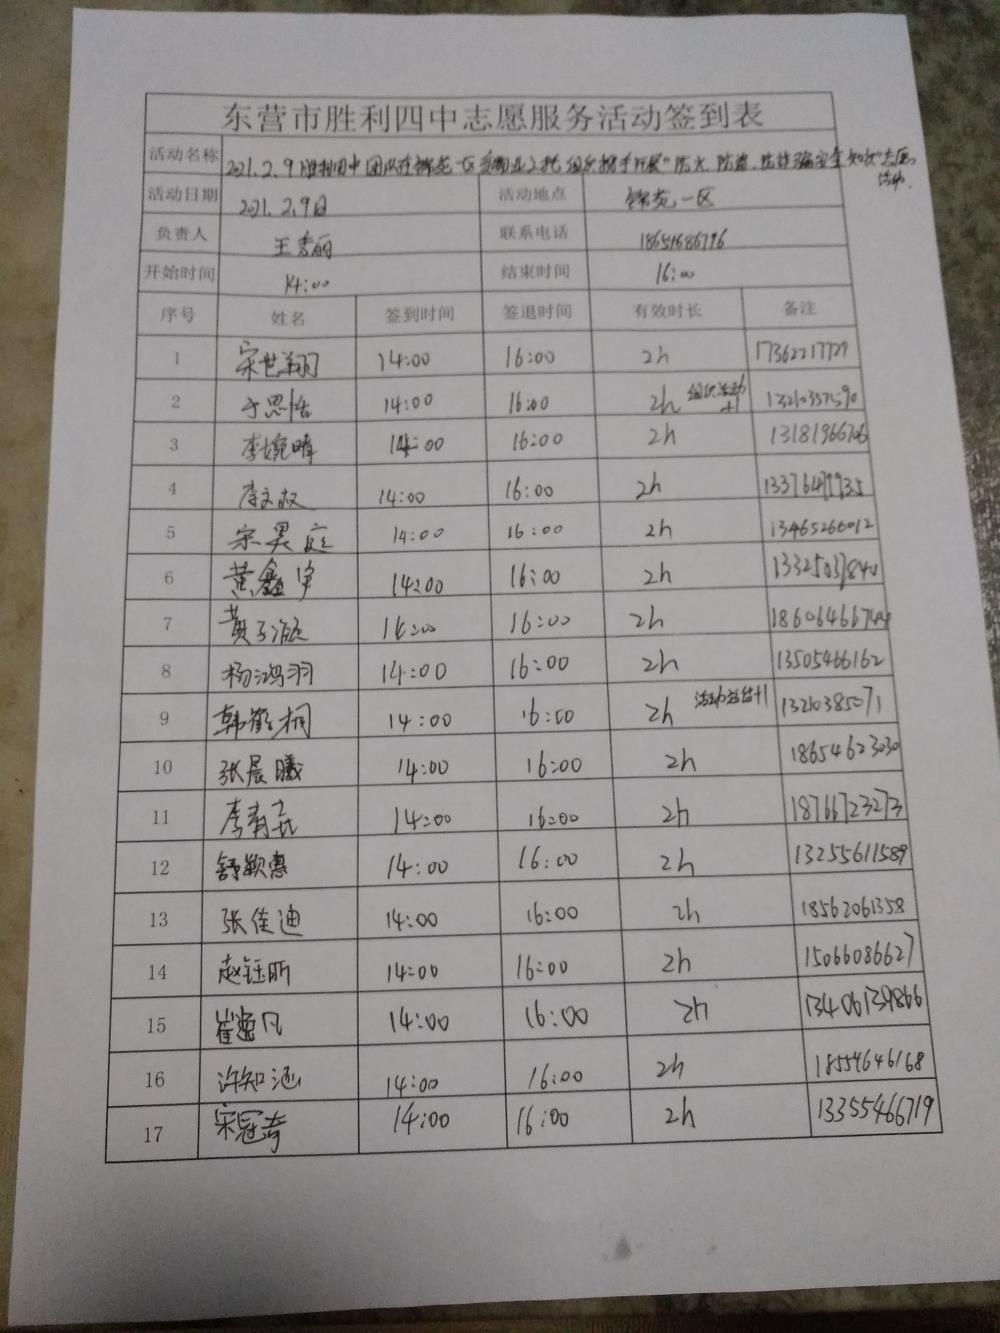 东营市胜利四中志愿服务活动签到表
活动名称 2021.2.9胜利四中团队在锦苑一区 组织携手开展"防火、防盗、防诈骗安全知识"志愿
活动.
活动日期 2021.2.9日 活动地点 锦苑一区
负责人 王秀丽 联系电话 18651686796
开始时间 14:00 结束时间 16:00
序号 姓名 签到时间 签退时间 有效时长 备注
1 宋世翔 14:00 16:00 2h 17362217729
2 于思恬 14:00 16:00 2h 组织活动+1 13210337590
3 李婉晴 14:00 16:00 2h 13181966706
4 李文权 14:00 16:00 2h
5 宋昊庭 14:00 16:00 2h 13465266012
6 黄鑫宇 14:00 16:00 2h
7 黄子 14:00 16:00 2h
8 杨鸿羽 14:00 16:00 2h 13505466162
9 韩鹤桐 14:00 16:00 2h 活动总结+1 13210385071
10 张晨曦 14:00 16:00 2h 18654623030
11 李 14:00 16:00 2h 18766723273
12 舒颖惠 14:00 16:00 2h 13255611589
13 张佳迪 14:00 16:00 2h 18562061358
14 赵钰昕 14:00 16:00 2h 15066086627
15 崔 凡 14:00 16:00 2h 13406139866
16 许知涵 14:00 16:00 2h 18554646168
17 宋冠奇 14:00 16:00 2h 13355466719